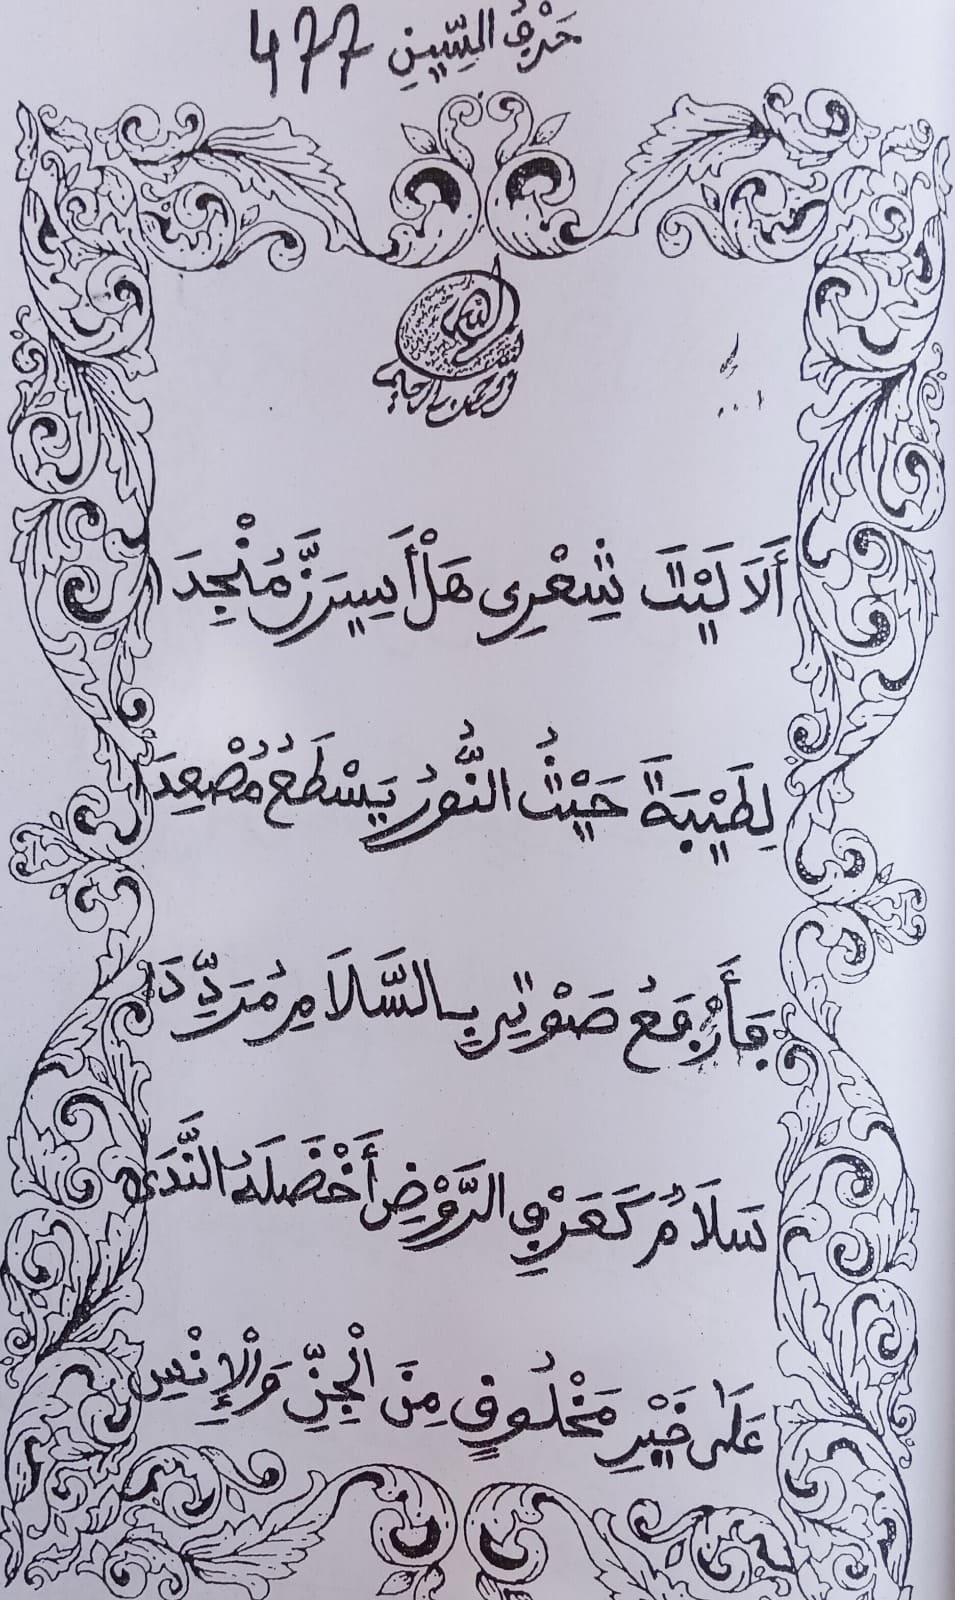 حَرْفُ السِّينِ 477
بسم الله الرحمن الرحيم
أَلَا لَيْتَ شِعْرِي هَلْ أَسِيرَنَّ مُنْجِدَا
لِطَيْبَةَ حَيْثُ النُّورُ يَسْطَعُ مُصْعِدَا
فَأَرْفَعُ صَوْتِي بِالسَّلَامِ مُرَدِّدَا
سَلَامٌ كَعَرْفِ الرَّوْضِ أَخْضَلَهُ النَّدَى
عَلَى خَيْرِ مَخْلُوقٍ مِنَ الْجِنِّ وَالْإِنْسِ